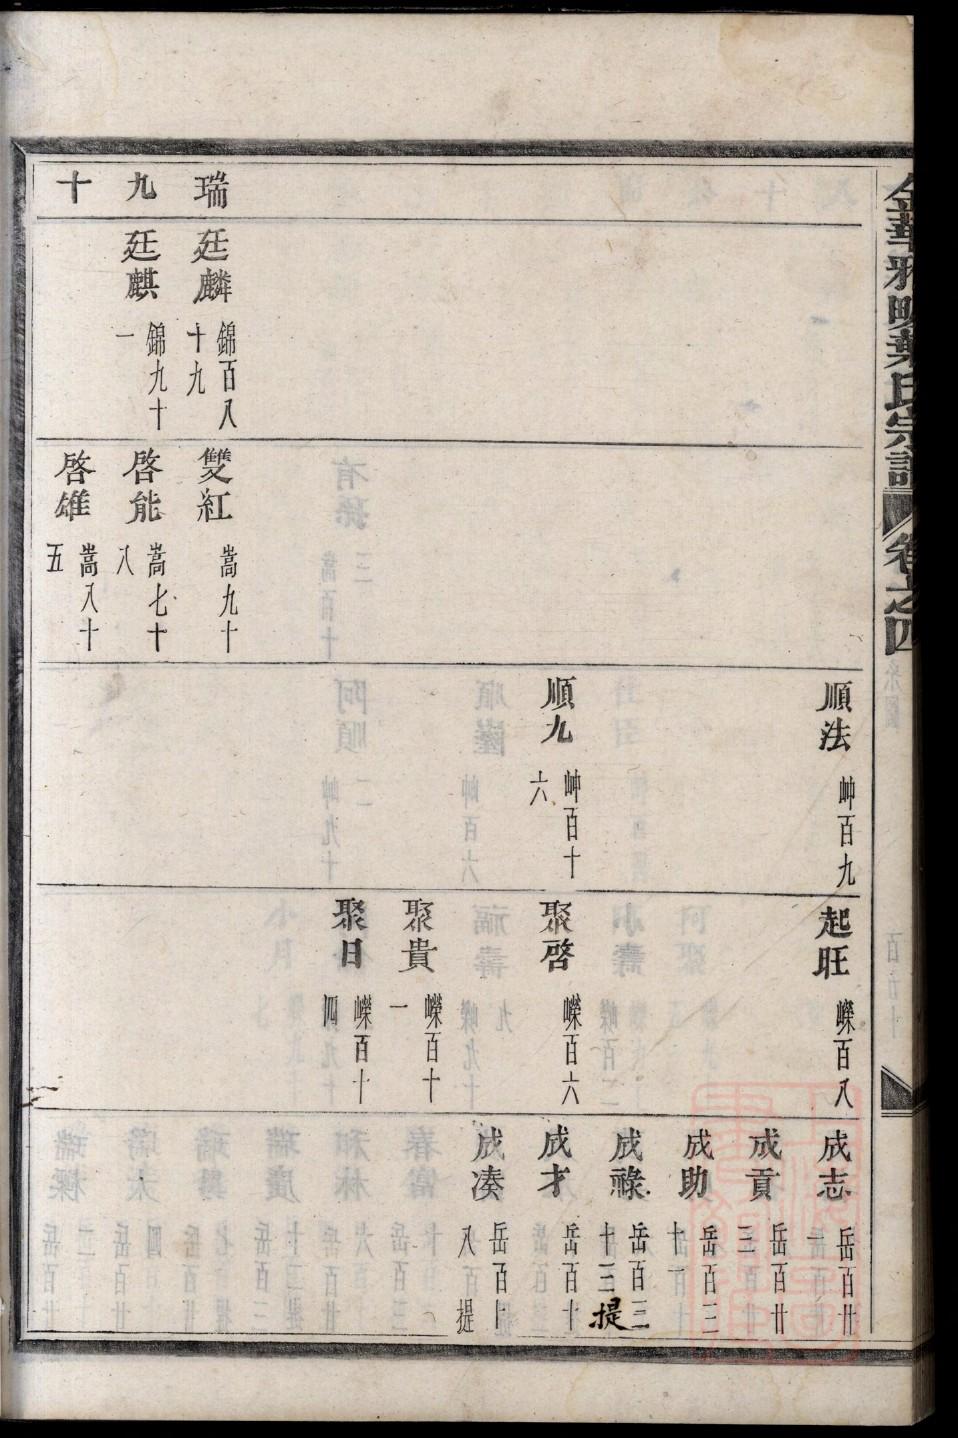 金華雅畈葉氏宗譜
卷之四
瑞
九
十
廷麟 錦百八十九
廷麒 錦九十一
雙紅 嵩九十
啓能 嵩七十八
啓雄 嵩八十五
順法 峅百九
順九 峅百十六
起旺 嶸百八
聚啓 嶸百六
聚貴 嶸百十一
聚日 嶸百十四
成志 岳百廿一
成貢 岳百廿三
成助 岳百三十一
成祿 岳百三十三 提
成才 岳百十
成湊 岳百十八 提